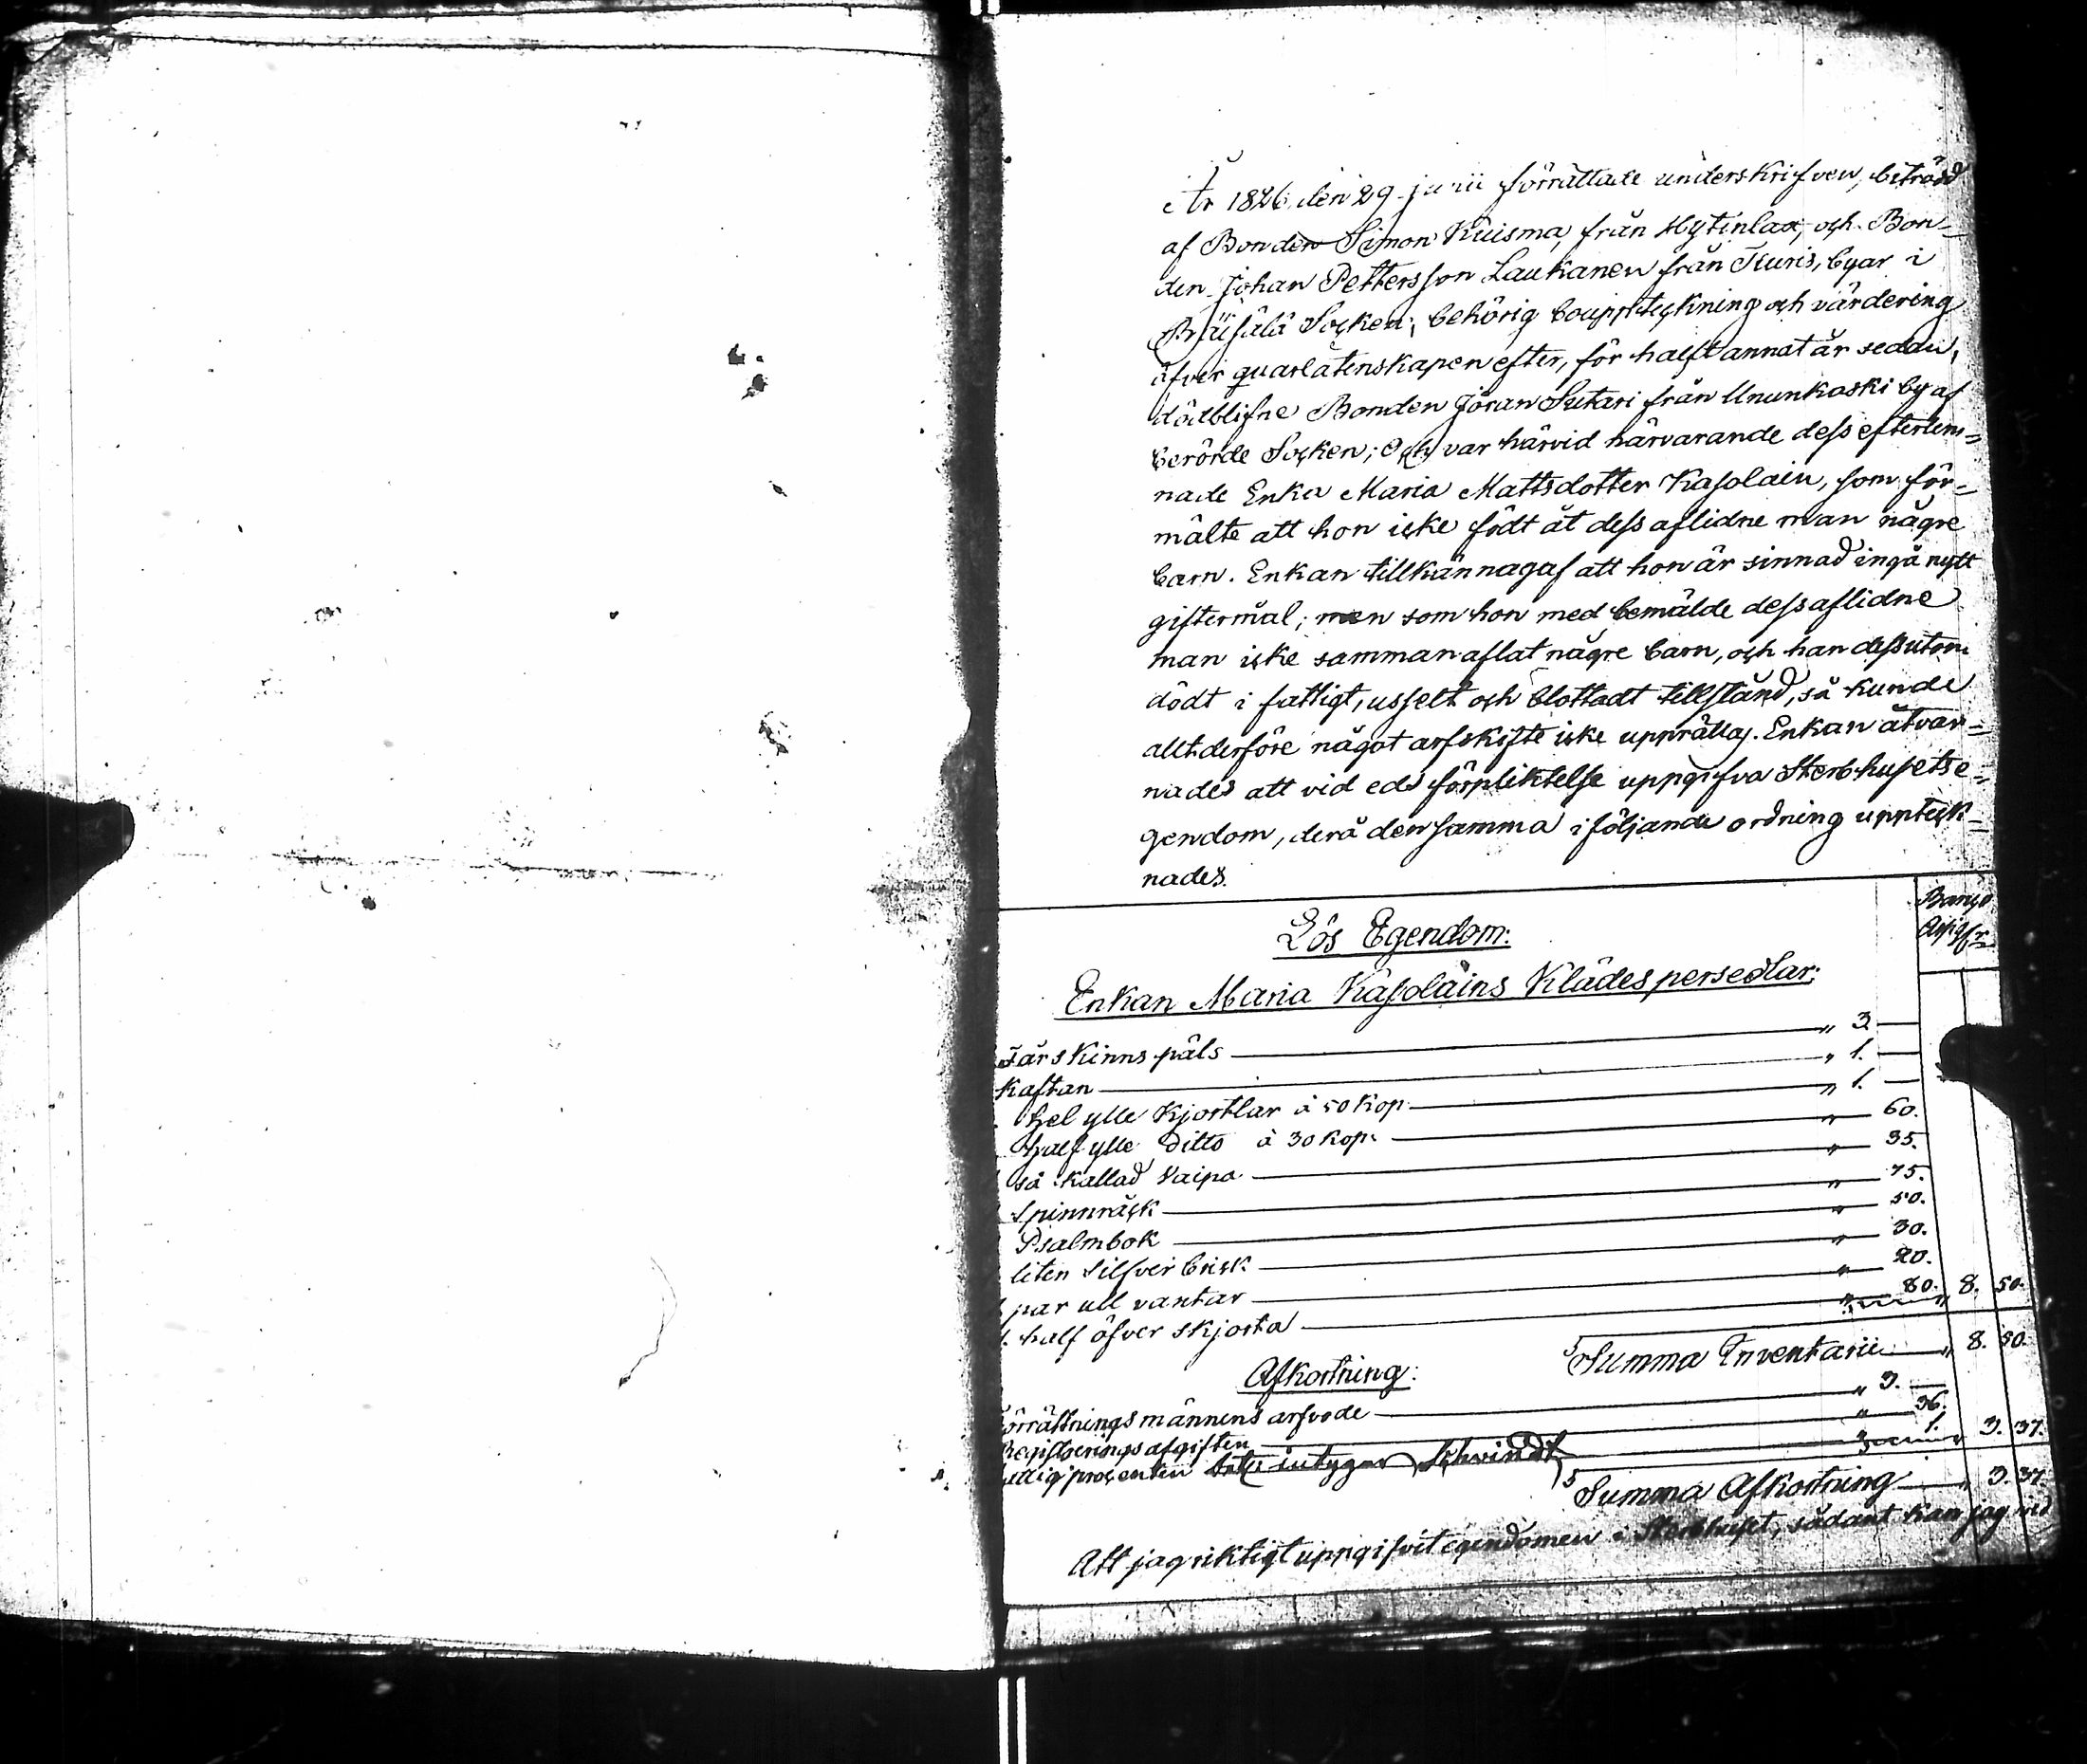 År 1826 den 29 junii förrättade underskrifven, biträdd
af Bonden Simon Kuisma, från Hytinlax, och Bon-
den Johan Pettersson Laukanen från Turis, byar i
Pyhsälä Socken, behörig bouppteckning och värdering
öfver quarlåtenskapen efter, för halft annat år sedan,
dödblifne Bonden Jöran Sutari från Ununkoski by af
berörde Socken; Och var härvid närvarande dess efterlem-
nade Enka Maria Mattsdotter Kasolain, som för-
mälte att hon icke födt åt dess aflidne man någre
barn. Enkan tillkännagaf att hon är sinnad ingå nytt
giftermål; men som hon med bemälde dess aflidne
man icke sammanaflat någre barn, och han dessutom
dödt i fattigt, usselt och blottadt tillstånd, så kunde
allt derföre något arfskifte icke upprättas. Enkan åtvar-
nades att vid eds förpliktelse uppgifva Sterbhusets e-
gendom, derå densamma i följande ordning uppteck-
nades.
Banco
Assig:r
Lös Egendom:
Enkan Maria Kasolains Klädespersedlar:
Fårskinns päls " 3 —
Kaftan " 1. —
hel ylle Kjortlar à 50 Kop " 1. —
half ylle ditto à 30 Kop: " 60.
så kallad Vaipa " 35.
Spinnråck " 75.
Psalmbok " 50.
liten Silfver brisk " 30.
par ull vantar " 20.
1. half öfver skjorta " 80. 8. 50.
Summa Inventarii " 8. 50.
Afkortning:
Förrättningsmännens arfvode " 3. —
Registreringsafgiften " 36.
fattig procenten betr: intygar Schvindt " 1. 3. 37.
Summa Afkortning " 3. 37.
Att jag riktigt uppgifvit egendomen i Sterbhuset, sådant kan jag vid